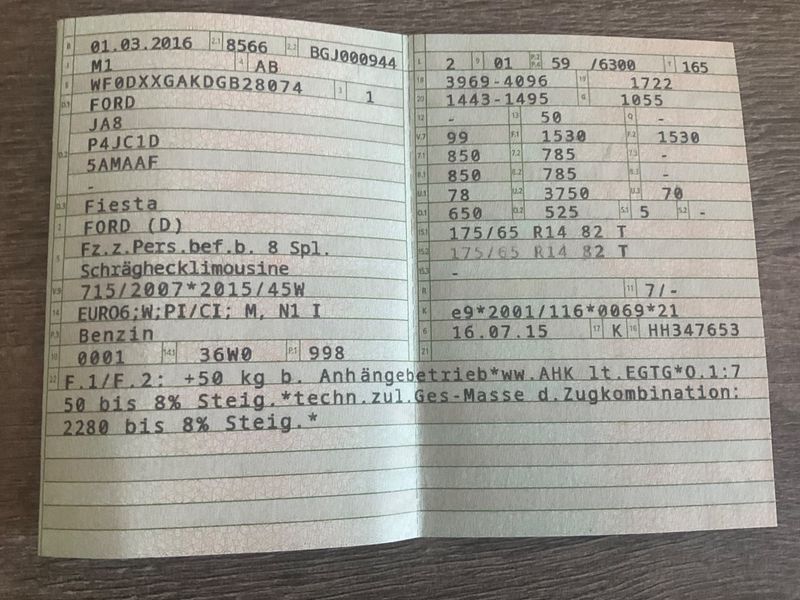 B 01.03.2016 2.1 8566 2.2 BGJ000944
J M1 4 AB
E WF0DXXGAKDGB28074 3 1
D.1 FORD
JA8
D.2 P4JC1D
5AMAAF
-
D.3 Fiesta
2 FORD (D)
5 Fz.z.Pers.bef.b. 8 Spl.
Schräghecklimousine
V.9 715/2007*2015/45W
14 EURO6;W;PI/CI; M, N1 I
P.3 Benzin
10 0001 14.1 36W0 P.1 998
L 2 9 01 P.2 P.4 59 /6300 T 165
18 3969-4096 19 1722
20 1443-1495 G 1055
12 - 13 50 Q -
V.7 99 F.1 1530 F.2 1530
7.1 850 7.2 785 7.3 -
8.1 850 8.2 785 8.3 -
U.1 78 U.2 3750 U.3 70
O.1 650 O.2 525 S.1 5 S.2 -
15.1 175/65 R14 82 T
15.2 175/65 R14 82 T
15.3 -
R 11 7/-
K e9*2001/116*0069*21
6 16.07.15 17 K 16 HH347653
21
22 F.1/F.2: +50 kg b. Anhängebetrieb*ww.AHK lt.EGTG*O.1:7
50 bis 8% Steig.*techn.zul.Ges-Masse d.Zugkombination:
2280 bis 8% Steig.*